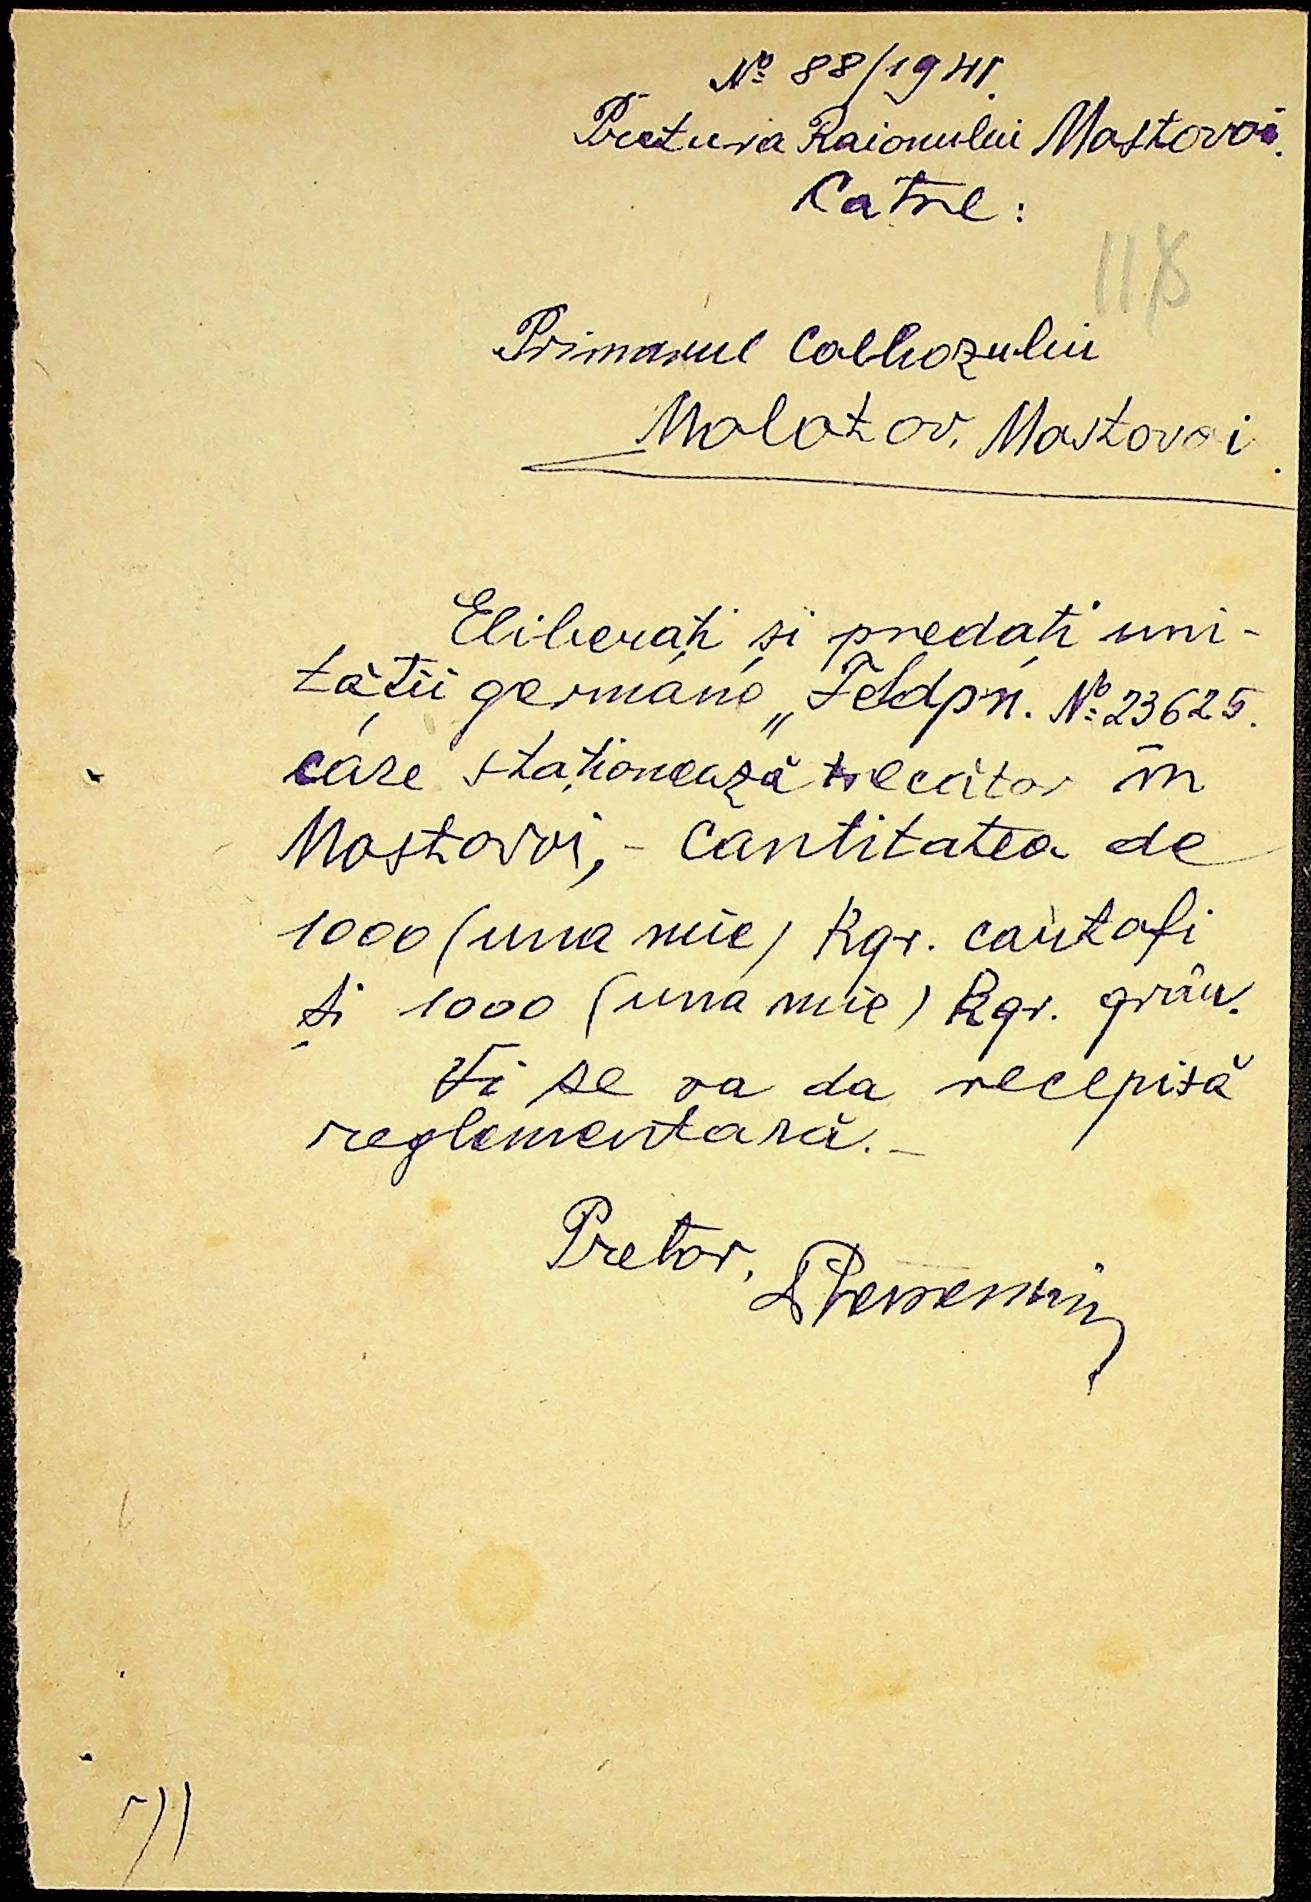 № 88/1941.
Pretura Raionului Mostovoi.
Catre:
118
Primarul Colhozului
Molotov, Mostovoi.
Eliberați și predați uni-
tății germane „Feldpn. № 23625.
care staționează trecător în
Mostovoi, - cantitatea de
1000 (una mie) Kgr. cartofi
și 1000 (una mie) Kgr. grâu.
Vi se va da recepisă
reglementară. -
Pretor,